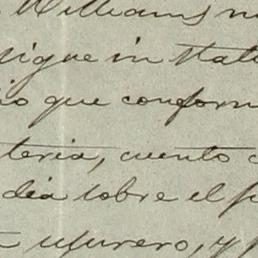 Williams
sigue in statu
que conform
teria, cuento
dia sobre el
usurero, y